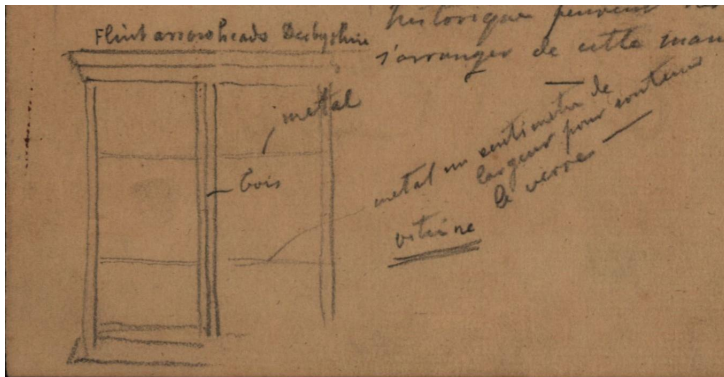 Flint arrowheads Derbyshire
historique peuvent
s'arranger de cette man
metal
bois
metal un centimetre de
largeur pour soutenir
le verre
vitrine